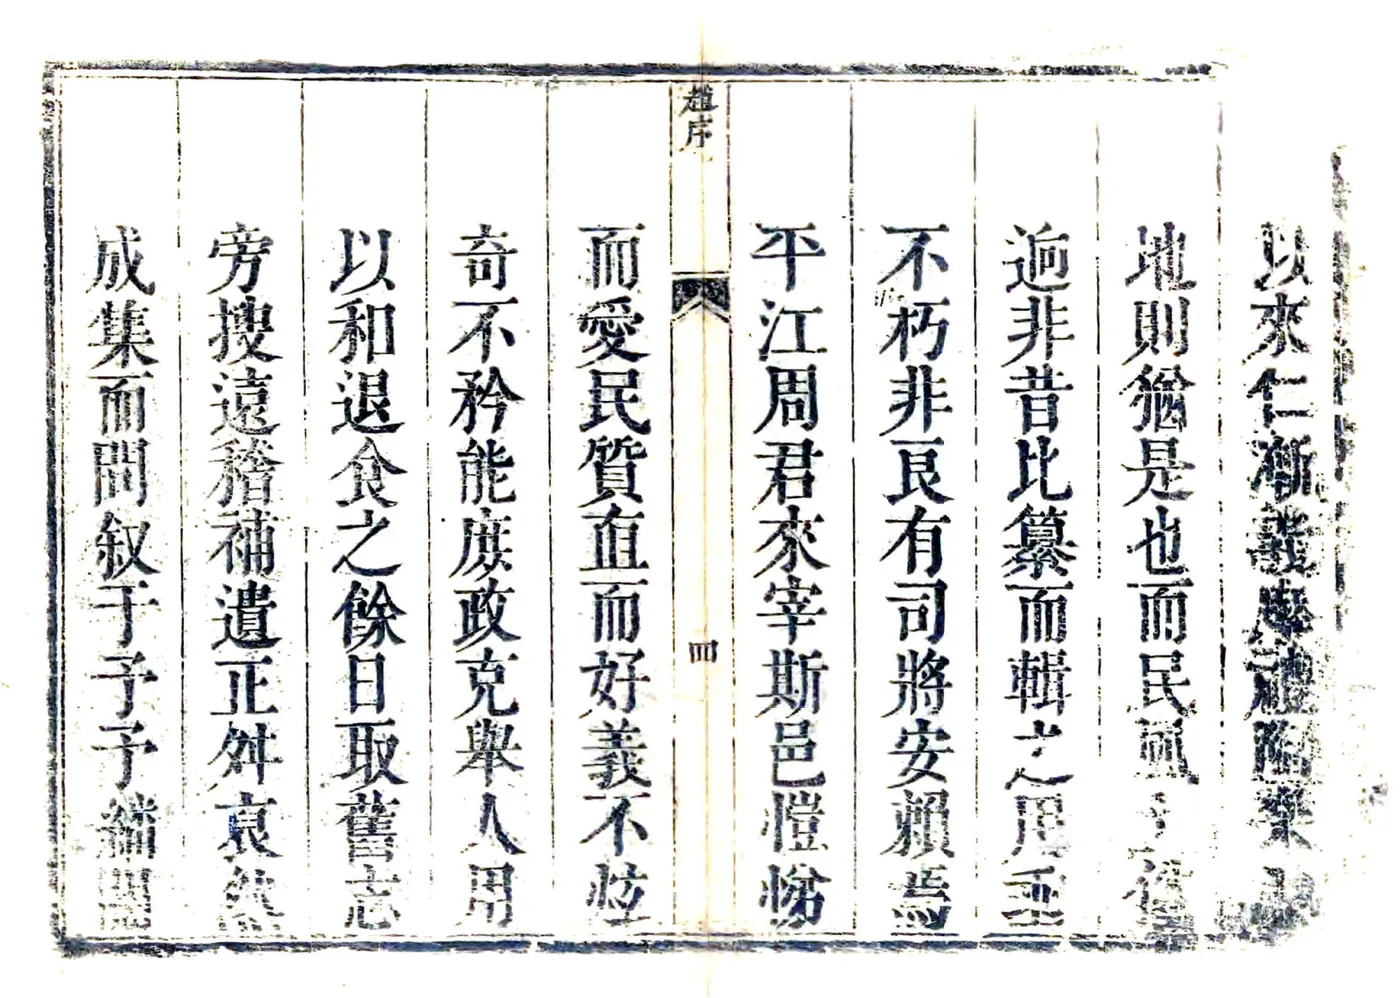 以來仁漸義摩禮陶樂
地則猶是也而民風
逈非昔比纂而輯之用垂
不朽非良有司將安賴焉
平江周君來宰斯邑愷悌
趙序
四
而愛民質直而好義不炫
奇不矜能庶政克舉人用
以和退食之餘日取舊志
旁搜遠稽補遺正舛裒然
成集而問叙于予予繙閱